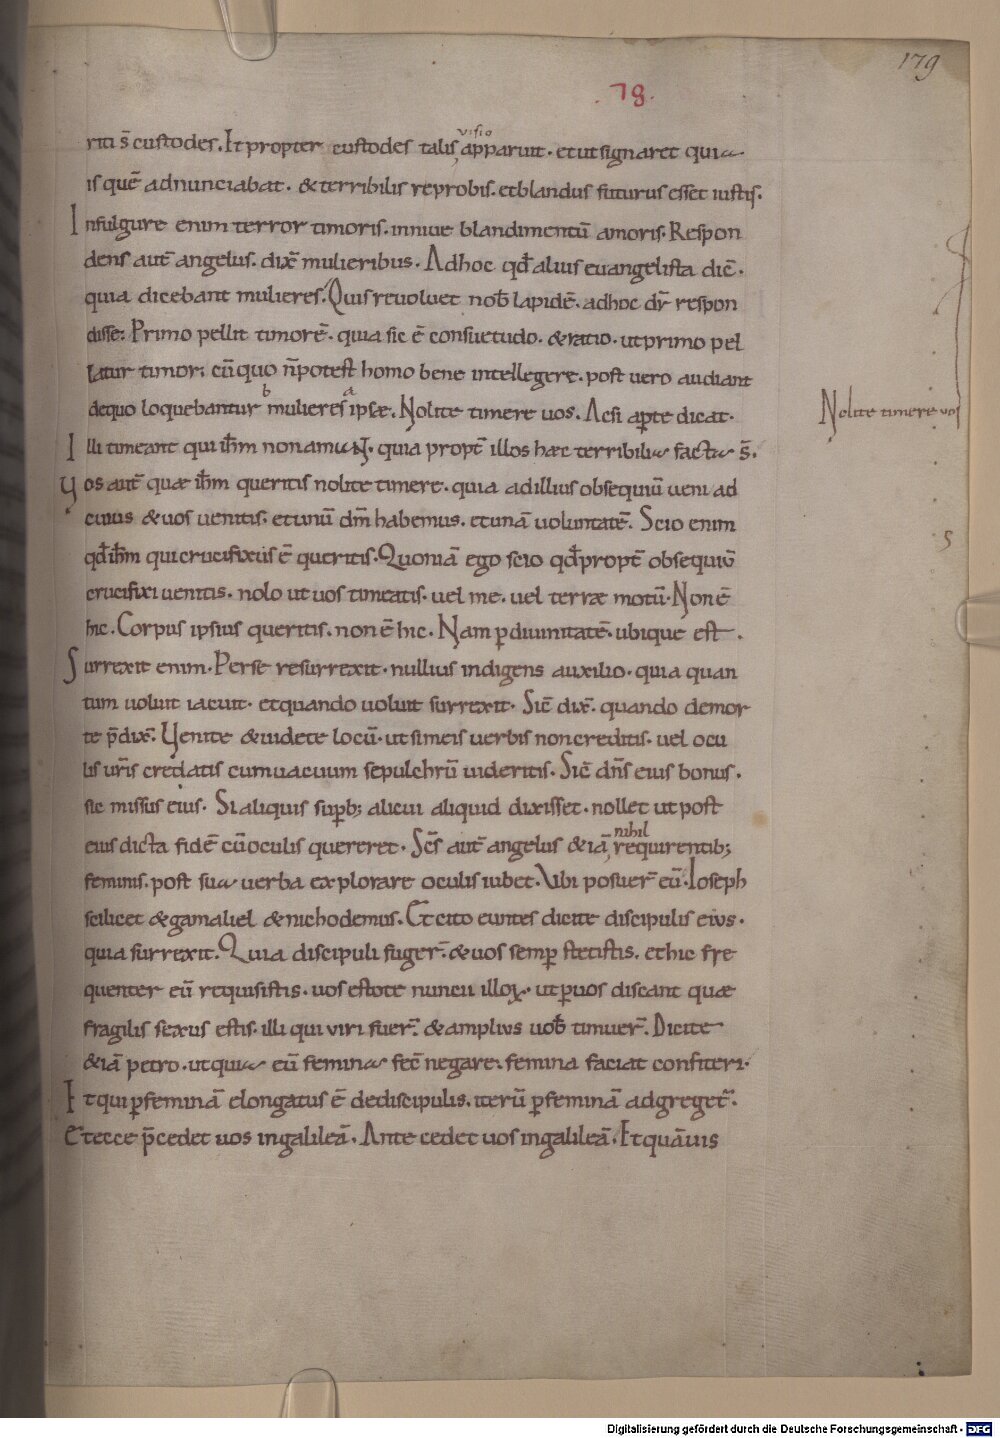 179
.78.
riti s̄ custodes. Et propter custodes talis visio apparuit. et ut signaret quia
is quē adnunciabat. & terribilis reprobis. et blandus futurus esset iustis.
Infulgure enim terror timoris. inniue blandimentū amoris. Respon
dens aut̄ angelus. dix̄ mulieribus. Ad hoc qđ alius euangelista dic̄.
quia dicebant mulieres. Quis reuoluet nob̄ lapidē. ad hoc dr̄ respon
disse. Primo pellit timorē. quia sic ē consuetudo. & ratio. ut primo pel
latur timor; cū quo n̄ potest homo bene intellegere. post uero audiant
de quo loquebantur b mulieres a ipsæ. Nolite timere uos. Ac si aꝑte dicat.
Nolite timere vos
Illi timeant qui ih̄m non amant. quia propt̄ illos hæc terribilia facta s̄.
Vos aut̄ quæ ih̄m queritis nolite timere. quia ad illius obsequiū ueni ad
cuius & uos uenitis. et unū dm̄ habemus. et unā uoluntatē. Scio enim
qđ ih̄m qui crucifixus ē queritis. Quoniā ego scio qđ propt̄ obsequiū
5
crucifixi uenitis. nolo ut uos timeatis. uel me. uel terræ motū. Non ē
hic. Corpus ipsius queritis. non ē hic. Nam ꝑ diuinitatē. ubique est.
Surrexit enim. Per se resurrexit. nullius indigens auxilio. quia quan
tum uoluit iacuit. et quando uoluit surrexit. Sic̄ dix̄. quando de mor
te p̄dix̄. Venite & uidete locū. ut si meis uerbis non creditis. uel ocu
lis ur̄is credatis cum uacuum sepulchrū uideritis. Sic̄ dn̄s eius bonus.
sic missus eius. Si aliquis suꝑb; alicui aliquid dixisset. nollet ut post
eius dicta fidē cū oculis quereret. Sc̄s aut̄ angelus & iā nihil requirentib;
feminis. post sua uerba explorare oculis iubet. Vbi posuer̄ eū. Ioseph
scilicet & gamaliel & nichodemus. Et cito euntes dicite discipulis eius.
quia surrexit. Quia discipuli fuger̄. & uos semꝑ stetistis. et hic fre
quenter eū requisistis. uos estote nuncii illoꝝ. ut ꝑ uos discant quæ
fragilis sexus estis. illi qui viri fuer̄. & amplius uob̄ timuer̄. Dicite
& iā petro. ut quia eū femina fec̄ negare. femina faciat confiteri.
Et qui ꝑ feminā elongatus ē de discipulis. iterū ꝑ feminā adgreget̄.
Et ecce p̄cedet uos in galileā. Ante cedet uos in galileā. Et quāuis
Digitalisierung gefördert durch die Deutsche Forschungsgemeinschaft - DFG